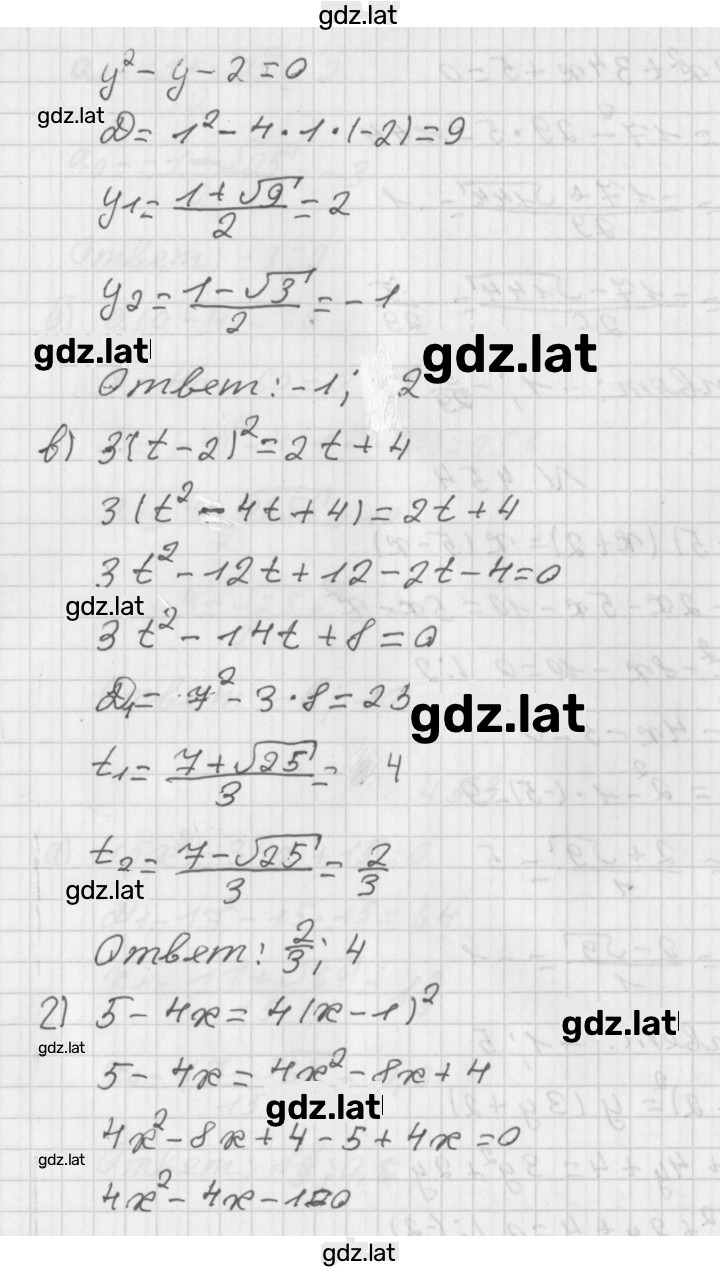 gdz.lat
y² - y - 2 = 0
gdz.lat
D = 1² - 4 · 1 · (-2) = 9
y₁ = (1 + √9)/2 = 2
y₂ = (1 - √3)/2 = -1
gdz.lat
gdz.lat
Ответ: -1; 2
в) 3(t - 2)² = 2t + 4
3(t² - 4t + 4) = 2t + 4
3t² - 12t + 12 - 2t - 4 = 0
gdz.lat
3t² - 14t + 8 = 0
D₁ = 7² - 3 · 8 = 23
gdz.lat
t₁ = (7 + √25)/3 = 4
t₂ = (7 - √25)/3 = 2/3
gdz.lat
Ответ: 2/3; 4
г) 5 - 4x = 4(x - 1)²
gdz.lat
gdz.lat
5 - 4x = 4x² - 8x + 4
gdz.lat
4x² - 8x + 4 - 5 + 4x = 0
gdz.lat
4x² - 4x - 1 = 0
gdz.lat